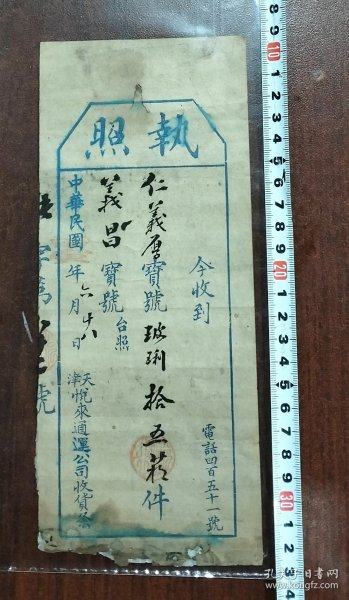 執照
今收到
仁義厚寶號玻琍拾五箱件
電話四百五十一號
義昌寶號台照
中華民國 年六月廿八日
天津悅來通運公司收貨条
字第
號
9 10 1 2 3 4 5 6 7 8 9 20 1 2 3 4 5 6 7 8 9 30 1 2
孔夫子旧书网